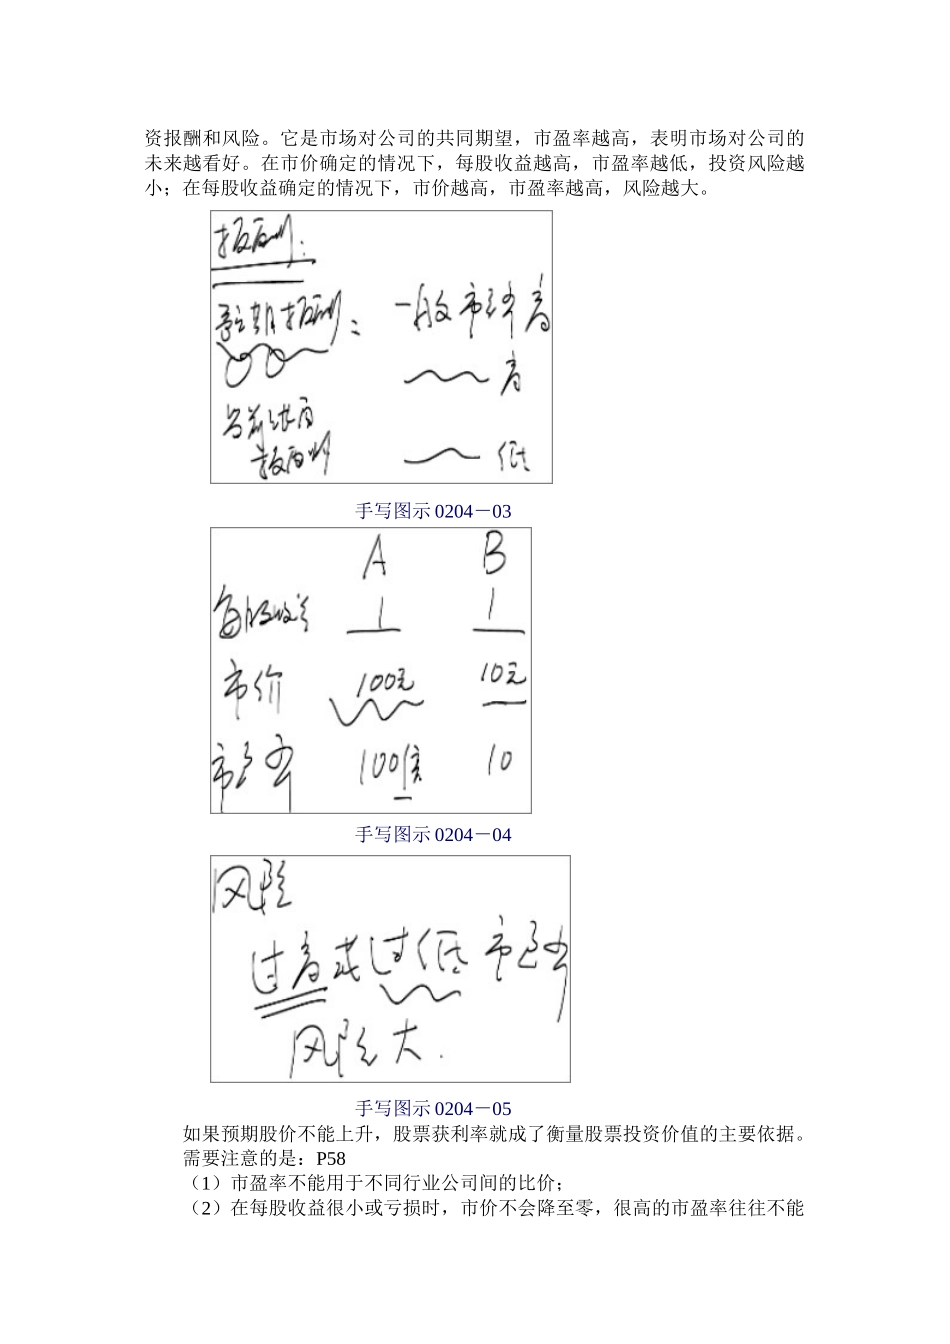 资报酬和风险。它是市场对公司的共同期望，市盈率越高，表明市场对公司的
未来越看好。在市价确定的情况下，每股收益越高，市盈率越低，投资风险越
小；在每股收益确定的情况下，市价越高，市盈率越高，风险越大。
报酬：
预期报酬： 一般市盈率高
高
当前
报酬 低
手写图示 0204－03
A B
每股收益 1 1
市价 100元 10元
市盈率 100倍 10
手写图示 0204－04
风险
过高或过低市盈率
风险大.
手写图示 0204－05
如果预期股价不能上升，股票获利率就成了衡量股票投资价值的主要依据。
需要注意的是：P58
（1）市盈率不能用于不同行业公司间的比价；
（2）在每股收益很小或亏损时，市价不会降至零，很高的市盈率往往不能